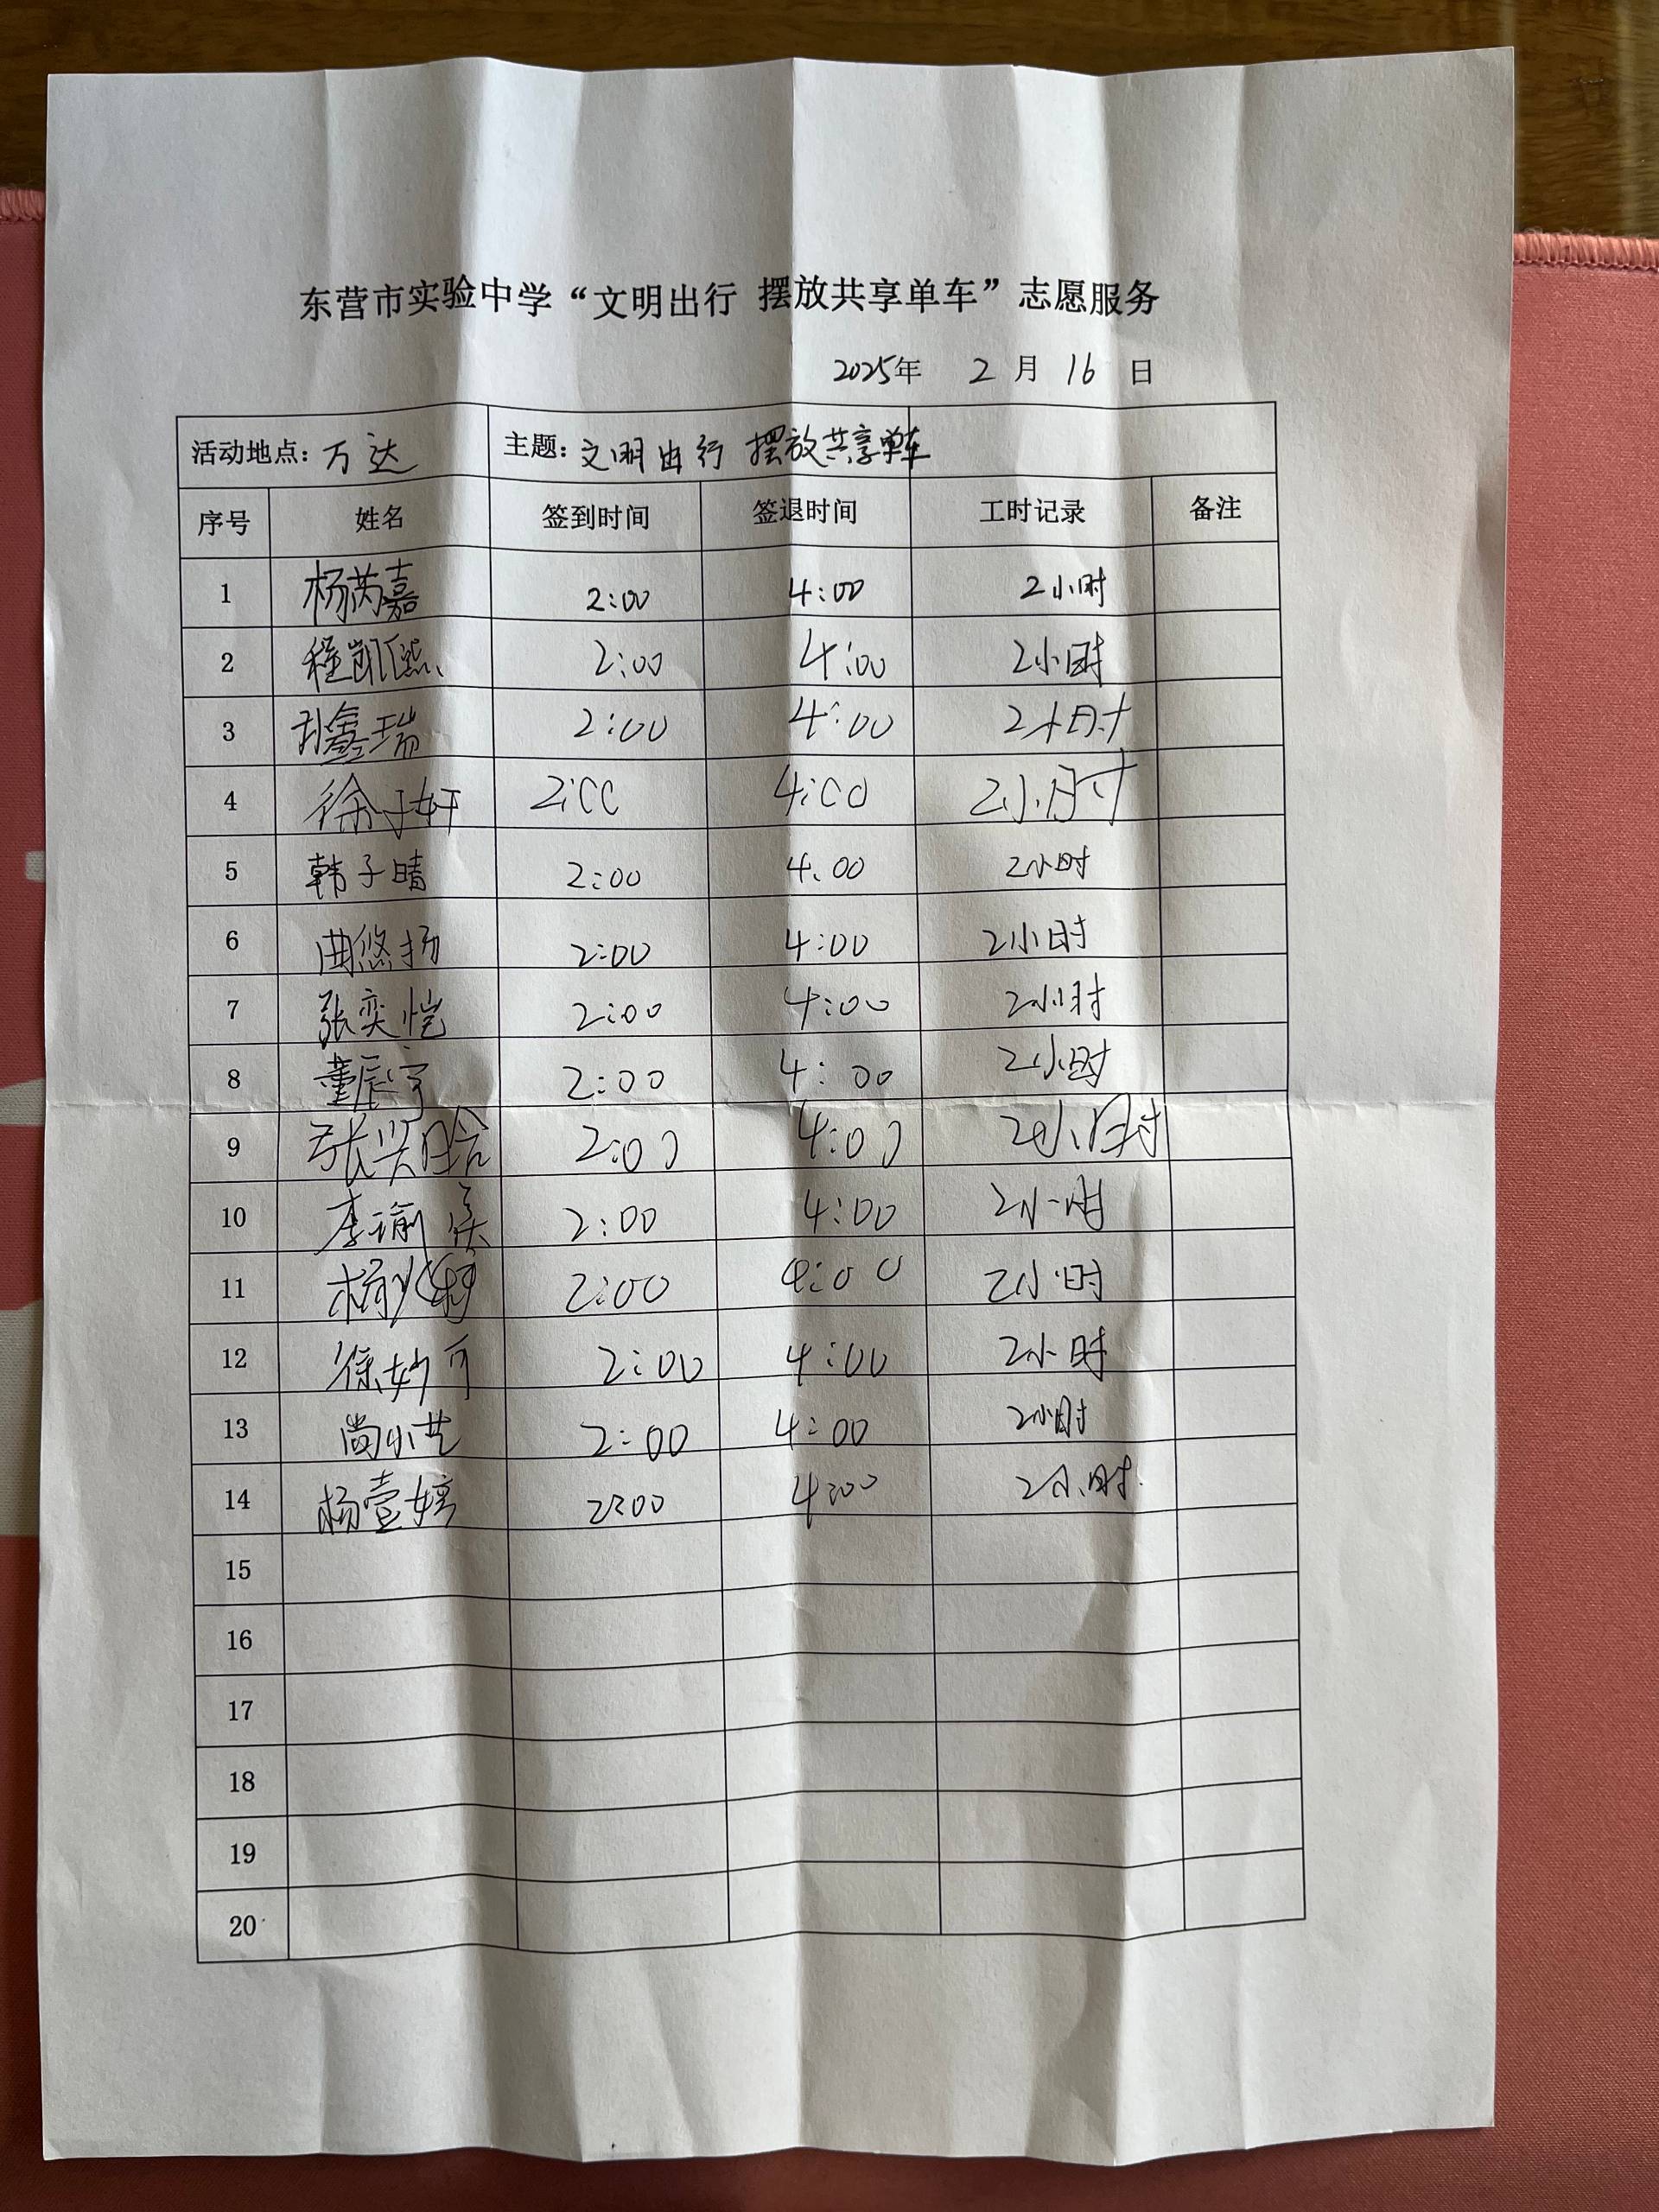 东营市实验中学“文明出行 摆放共享单车”志愿服务
2025年 2 月 16 日
活动地点：万达 主题：文明出行 摆放共享单车
序号 姓名 签到时间 签退时间 工时记录 备注
1 杨芮嘉 2:00 4:00 2小时
2 程凯熙 2:00 4:00 2小时
3 孙鑫瑞 2:00 4:00 2小时
4 徐子妍 2:00 4:00 2小时
5 韩子晴 2:00 4:00 2小时
6 曲悠扬 2:00 4:00 2小时
7 张奕恺 2:00 4:00 2小时
8 董辰宇 2:00 4:00 2小时
9 张兴晗 2:00 4:00 2小时
10 李瑜 2:00 4:00 2小时
11 杨 2:00 4:00 2小时
12 徐妙可 2:00 4:00 2小时
13 尚小艺 2:00 4:00 2小时
14 杨壹婷 2:00 4:00 2小时
15
16
17
18
19
20